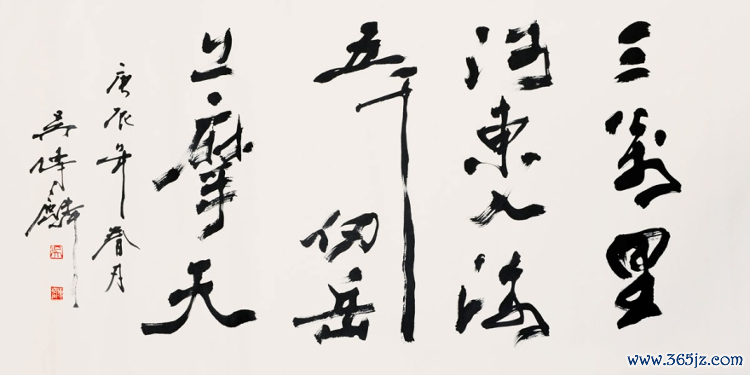 三萬里
河東入海
五千仞岳
上摩天
庚辰年春月
吴傳麟
www.365jz.com